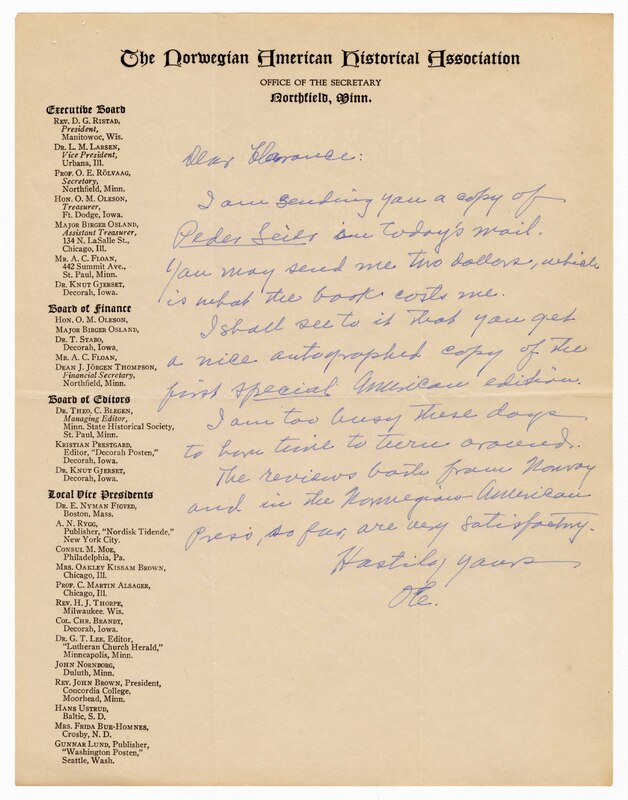 The Norwegian American Historical Association
OFFICE OF THE SECRETARY
Northfield, Minn.
Executive Board
REV. D. G. RISTAD,
President,
Manitowoc, Wis.
DR. L. M. LARSEN,
Vice President,
Urbana, Ill.
PROF. O. E. RÖLVAAG,
Secretary,
Northfield, Minn.
HON. O. M. OLESON,
Treasurer,
Ft. Dodge, Iowa.
MAJOR BIRGER OSLAND,
Assistant Treasurer,
134 N. LaSalle St.,
Chicago, Ill.
MR. A. C. FLOAN,
442 Summit Ave.,
St. Paul, Minn.
DR. KNUT GJERSET,
Decorah, Iowa.
Board of Finance
HON. O. M. OLESON,
MAJOR BIRGER OSLAND,
DR. T. STABO,
Decorah, Iowa,
MR. A. C. FLOAN,
DEAN J. JÖRGEN THOMPSON,
Financial Secretary,
Northfield, Minn.
Board of Editors
DR. THEO. C. BLEGEN,
Managing Editor,
Minn. State Historical Society,
St. Paul, Minn.
KRISTIAN PRESTGARD,
Editor, "Decorah Posten,"
Decorah, Iowa.
DR. KNUT GJERSET,
Decorah, Iowa.
Local Vice Presidents
DR. E. NYMAN FIGVED,
Boston, Mass.
A. N. RYGG,
Publisher, "Nordisk Tidende,"
New York City.
CONSUL M. MOE,
Philadelphia, Pa.
MRS. OAKLEY KISSAM BROWN,
Chicago, Ill.
PROF. C. MARTIN ALSAGER,
Chicago, Ill.
REV. H. J. THORPE,
Milwaukee. Wis.
COL. CHR. BRANDT,
Decorah, Iowa.
DR. G. T. LEE, Editor,
"Lutheran Church Herald,"
Minneapolis, Minn.
JOHN NORNBORG,
Duluth, Minn.
REV. JOHN BROWN, President,
Concordia College,
Moorhead, Minn.
HANS USTRUD,
Baltic, S. D.
MRS. FRIDA BUE-HOMNES,
Crosby, N. D.
GUNNAR LUND, Publisher,
"Washington Posten,"
Seattle, Wash.
Dear Clarance:
I am sending you a copy of
Peder Seier in today's mail.
You may send me two dollars, which
is what the book costs me.
I shall see to it that you get
a nice autographed copy of the
first special American edition.
I am too busy these days
to have time to turn around.
The reviews both from Norway
and in the Norwegian-American
Press, so far, are very satisfactory.
Hastily yours
Ole.